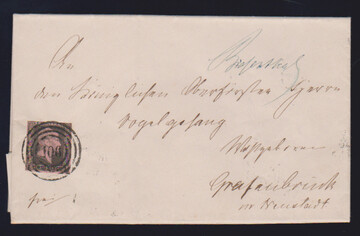 An
den Königlichen Oberförster Herrn
Vogelgesang
Wohlgeboren
Grafenbrück
b/ Neustadt
frei